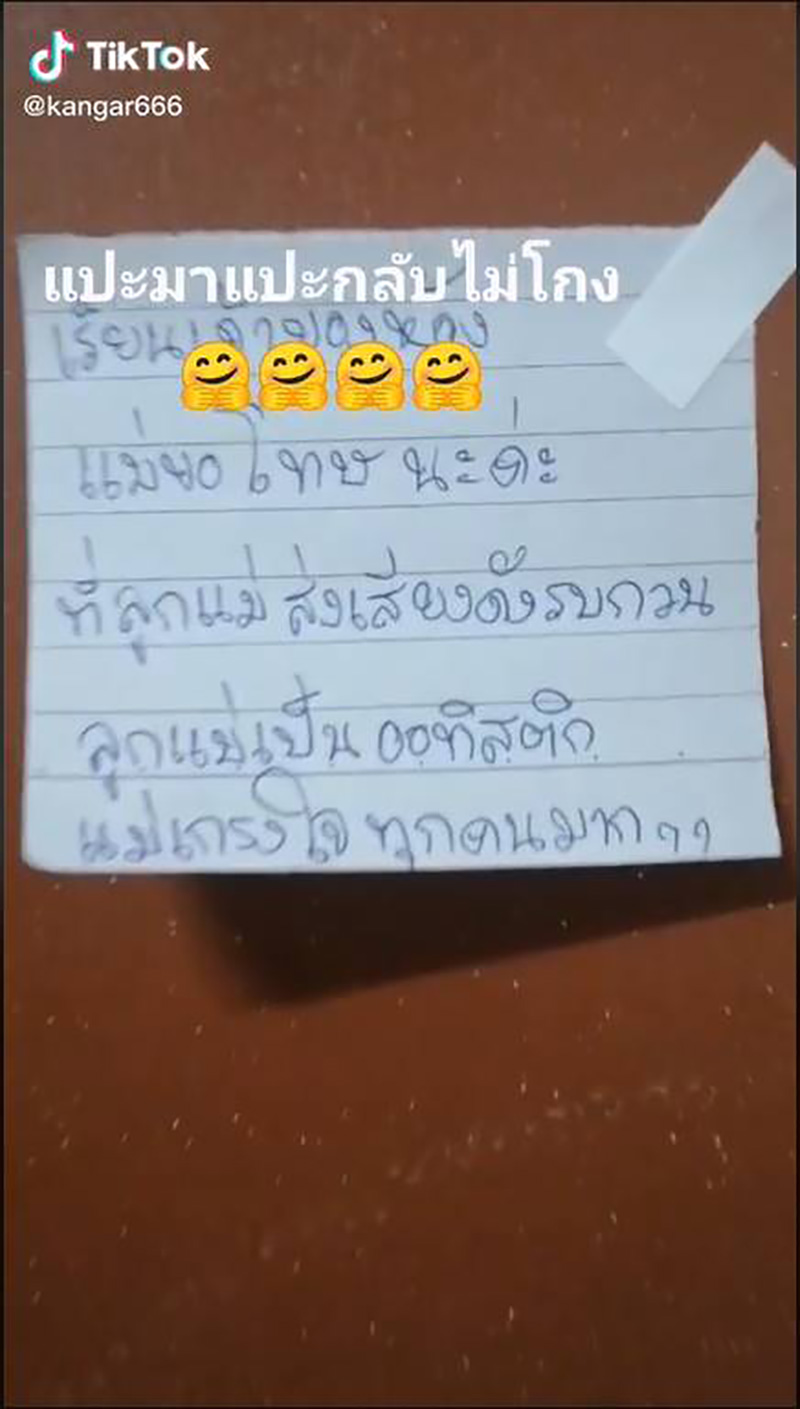 TikTok
@kangar666
แปะมาแปะกลับไม่โกง
เรียนเจ้าของห้อง
🤗🤗🤗🤗
แม่ขอโทษ นะค่ะ
ที่ลูกแม่ ส่งเสียงดังรบกวน
ลูกแม่เป็น ออทิสติก
แม่เกรงใจ ทุกคนมาก ๆๆ